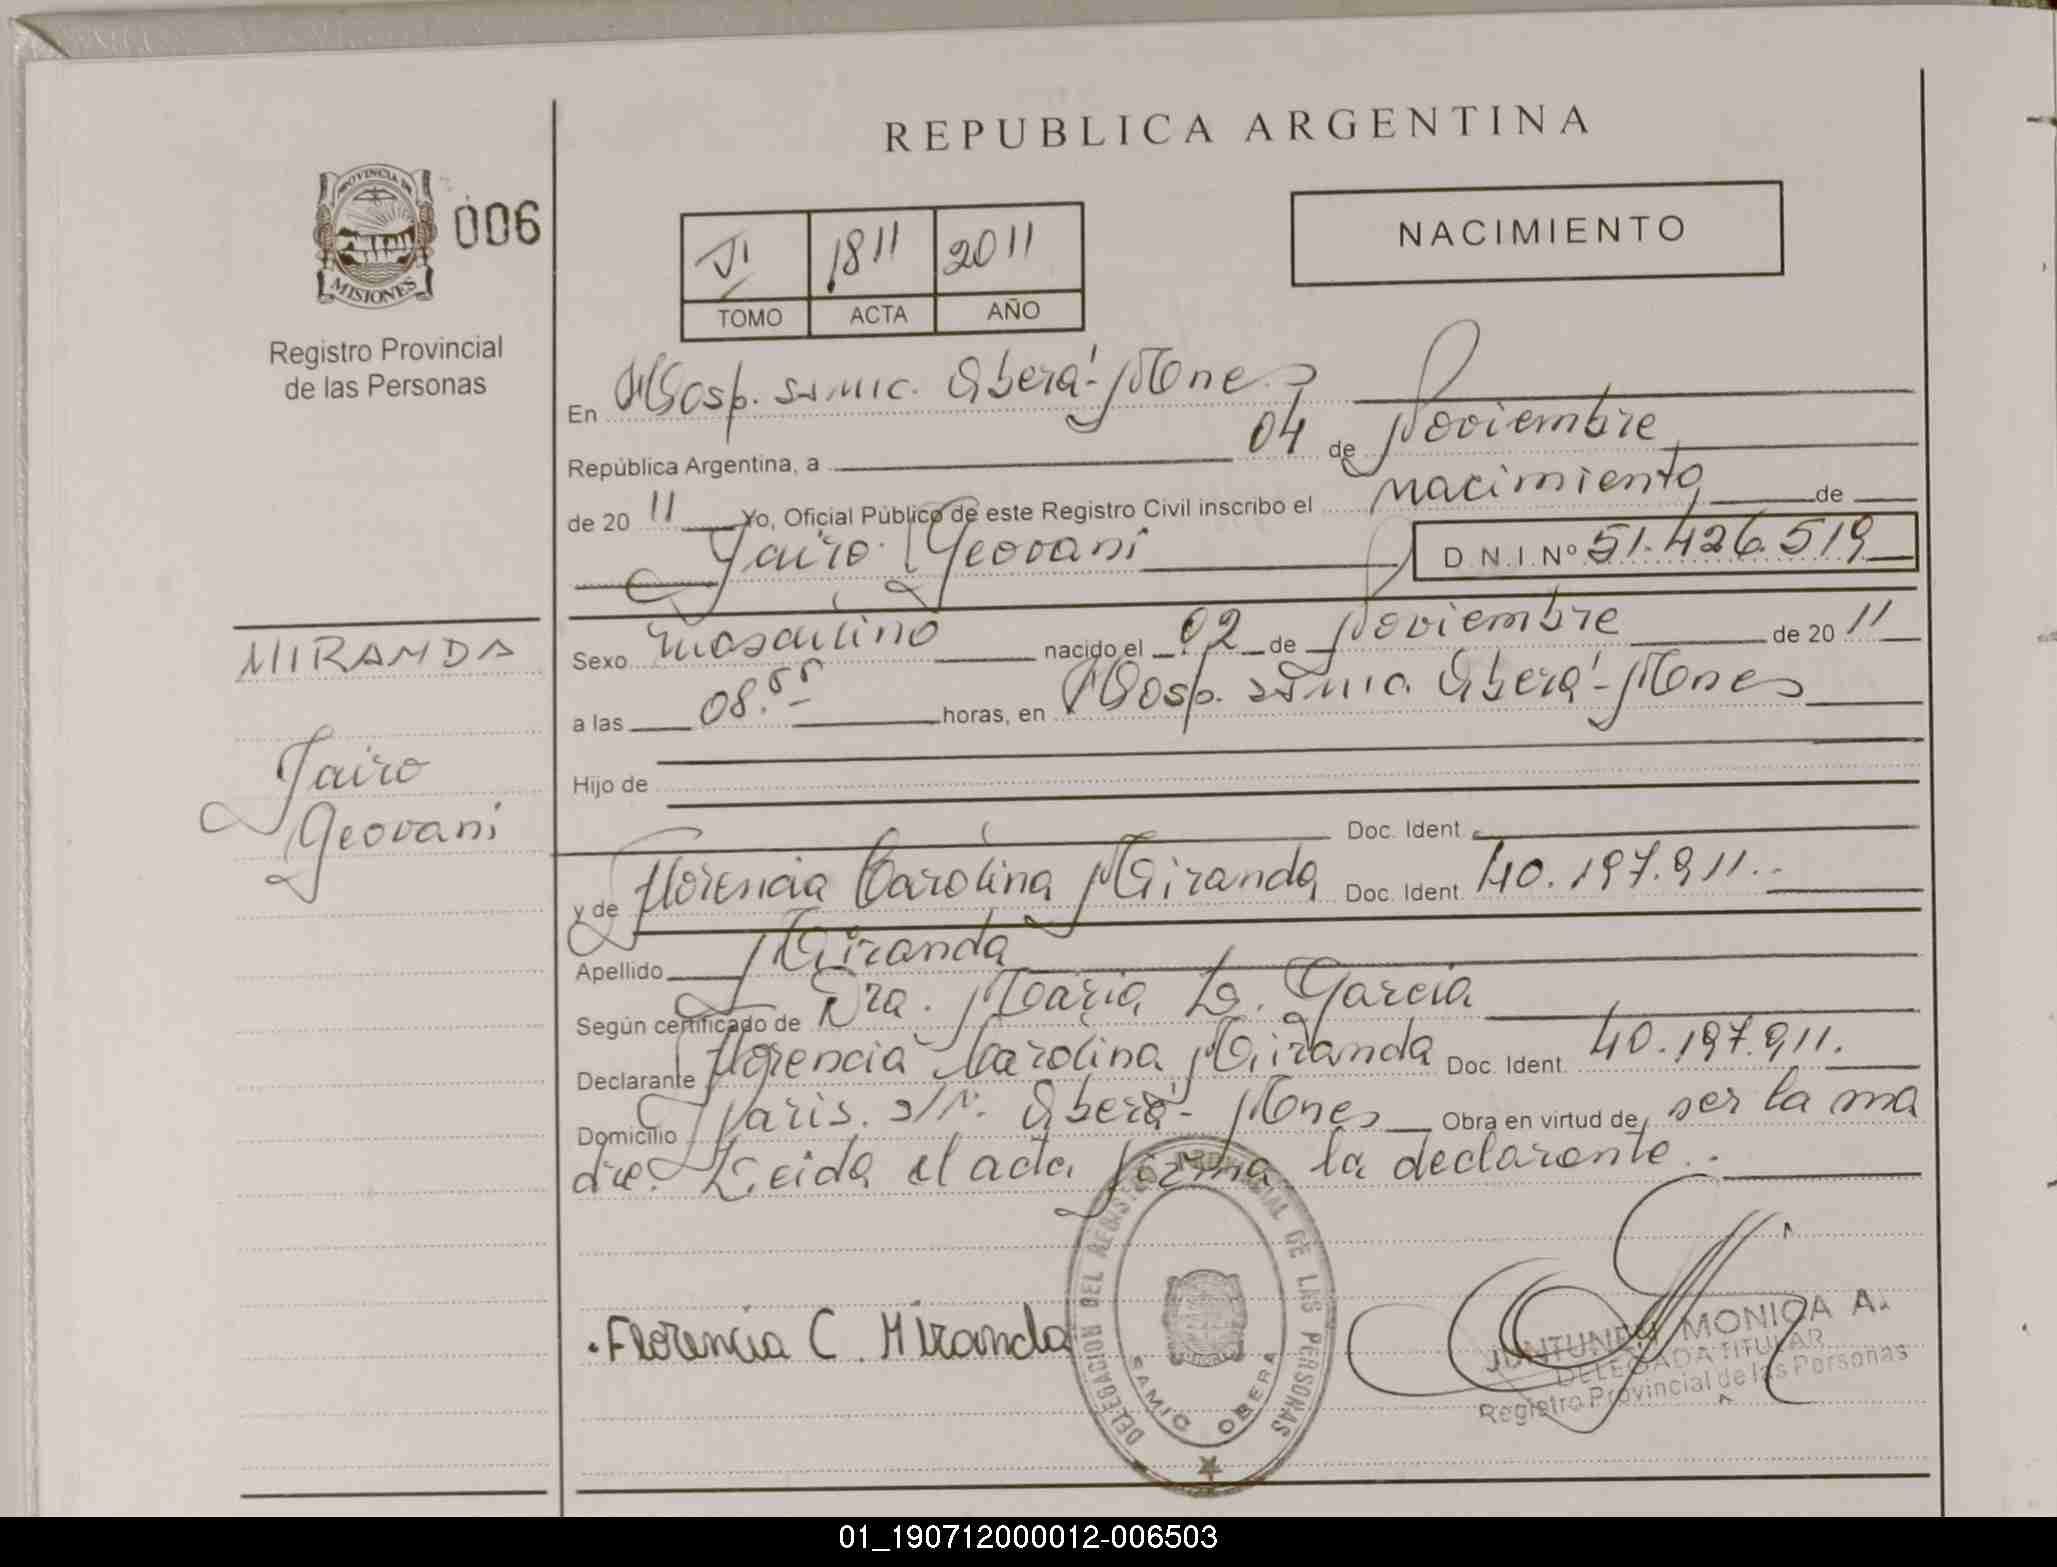 REPUBLICA ARGENTINA
PROVINCIA DE
MISIONES
006
Registro Provincial
de las Personas
VI 1811 2011
TOMO ACTA AÑO
NACIMIENTO
En Hosp. SAMIC. Oberá - Mnes
República Argentina, a 04 de Noviembre
de 20 11 Yo, Oficial Público de este Registro Civil inscribo el nacimiento de
Jairo Geovani D.N.I. Nº 51.426.519
MIRANDA
Jairo
Geovani
Sexo masculino nacido el 02 de Noviembre de 20 11
a las 08.55 horas, en Hosp. SAMIC. Oberá - Mnes
Hijo de
Doc. Ident.
y de Florencia Carolina Miranda Doc. Ident. 40.197.911.-
Apellido Miranda
Según certificado de Dra. Maria L. Garcia
Declarante Florencia Carolina Miranda Doc. Ident. 40.197.911.
Domicilio Paris. S/N. Oberá - Mnes Obra en virtud de ser la ma
dre. Leida el acta firma la declarante.-
Florencia C. Miranda
DELEGACION DEL REGISTRO PROVINCIAL DE LAS PERSONAS
SAMIC OBERA
MONICA A.
DELEGADA TITULAR
Registro Provincial de las Personas
01_190712000012-006503